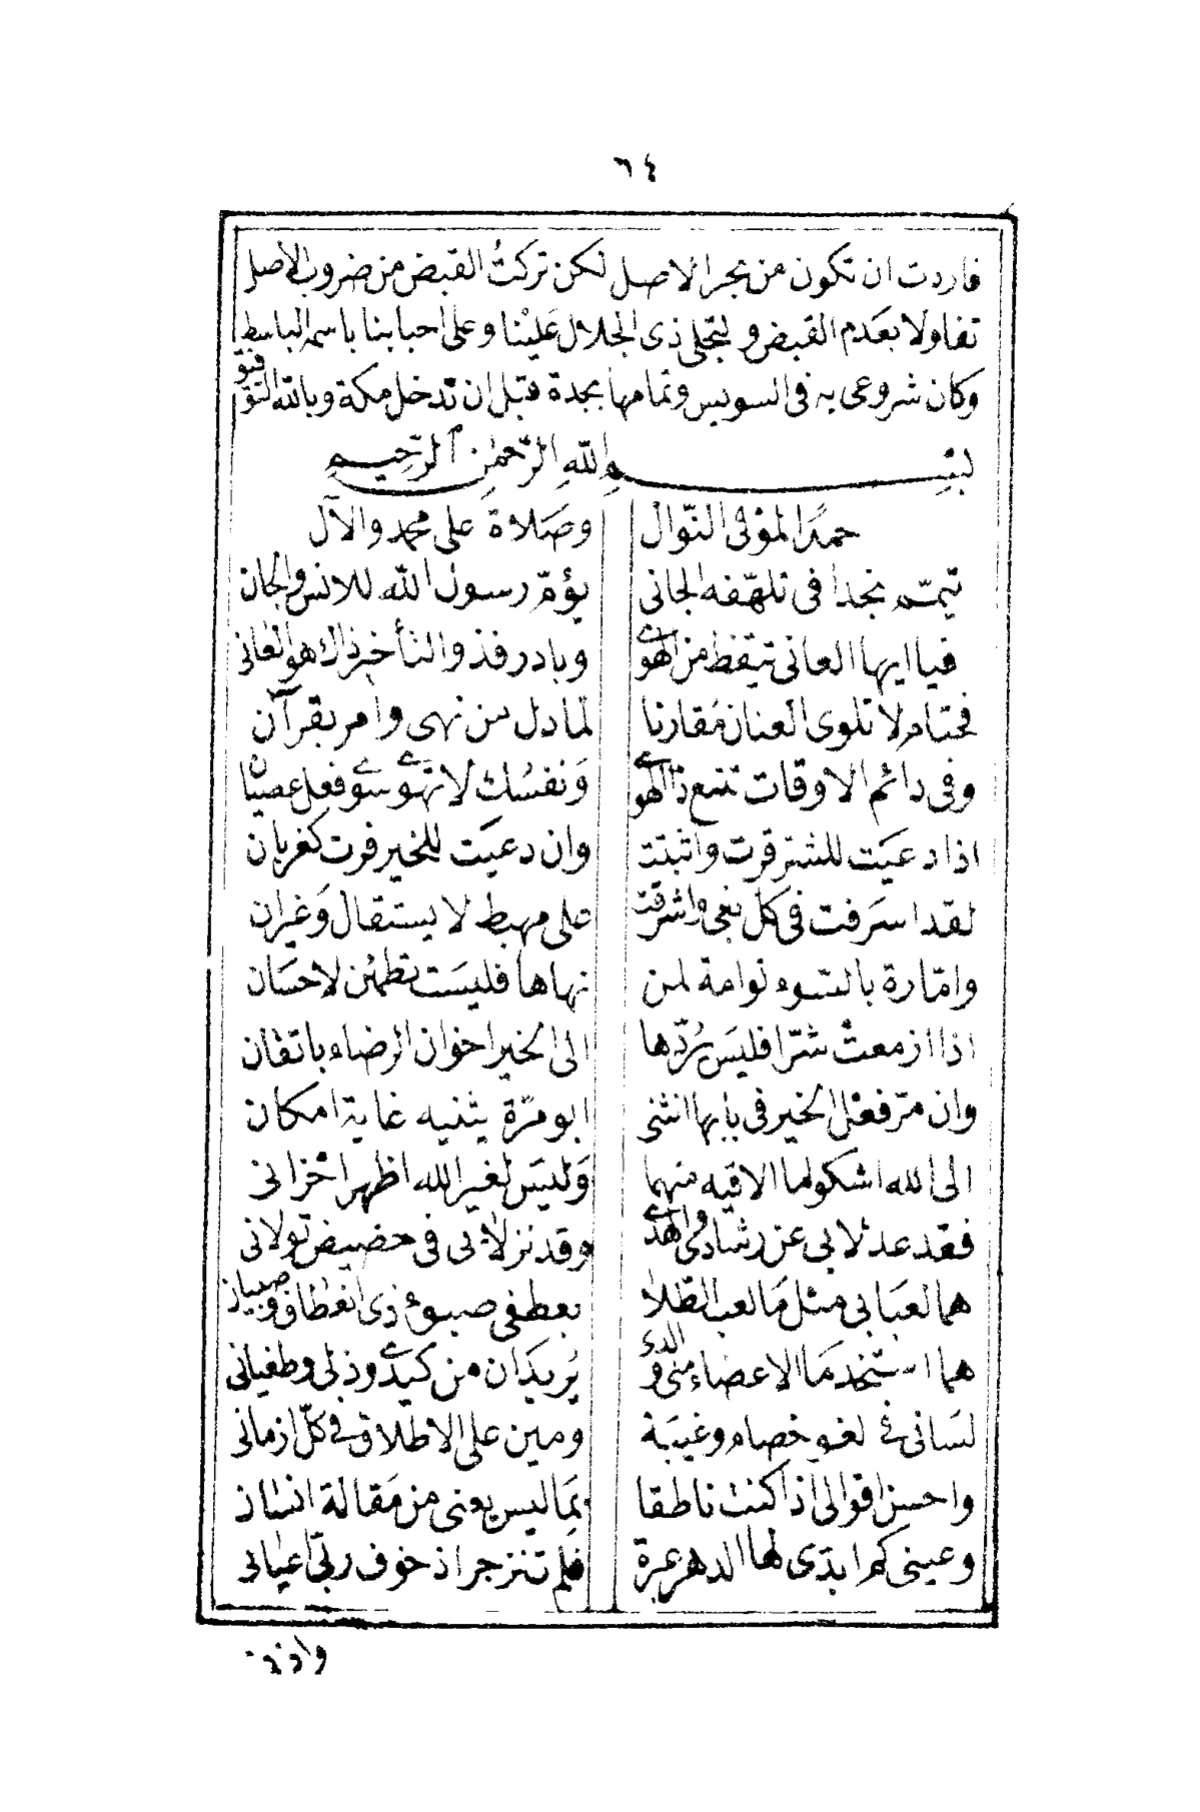 ٦٤
فاردت ان تكون من بحر الاصل لكن تركتُ القبض من ضروب الاصل
تفاولا بعدم القبض وليتجلى ذى الجلال عَليْنا وعلى احبابنا باسمه الباسط
وكان شروعى به فى السويس وتمامها بجدة قبل ان ندخل مكة وبالله التوفيق
بِسْمِ اللّٰهِ الرَّحمٰنِ الرَّحِيمِ
حمدًا لموْلى النّوال وصَلاة على محمد والآل
تيمّم نجدا فى تلهّفه الجانى يؤمّ رسول الله للانس والجان
فيا ايها العانى تيقظ من الهوى وبادر فذو التأخير ذاك هو العانى
فحتام لا تلوى العنان مُقارنا لما دل من نهى وامر بقرآن
وفى دائم الاوقات تتبع ذا الهوى وَنفسُك لا تهوى سوى فعل عصيان
اذا دعيَت للشر قرت واثبتت وان دعيَت للخير فرت كغربان
لقد اسرَفت فى كل بغى واشرفت على مهبط لا يستقال وَغيران
وامّارة بالسوء لوامة لمن نهاها فليسَت تطمئن لاحسَان
اذا ازمعتْ شرّا فليسَ يُردّها الى الخير اخوان الرضاء باتقان
وان مرّ فعل الخير فى بابها انثنى ابو مرّة يثنيه غاية امكان
الى الله اشكو لما الاقيه منهما وَليسَ لغير الله اظهر احزانى
فقد عدلا بى عن رشادى والهدى وقد نزلا بى فى حضيض تولانى
هما لعبَا بى مثل مَا لعب الطّلا بعطفى صبوء ذى انعطاف وصبيان
هما استخدمَا الاعضاء منى والذى يُريدَان من كيدى وذلى وطغيانى
لسَانى فى لغو خصام وغيبَة ومين على الاطلاق فى كلّ ازمانى
واحسن اقوالى اذا كنت ناطقا بمَا ليس يعنى من مَقالة انسان
وعينى كم ابدَى لها الدهر عبرة فلم تنزجر اذ خوف ربّى اعيانى
واذنى